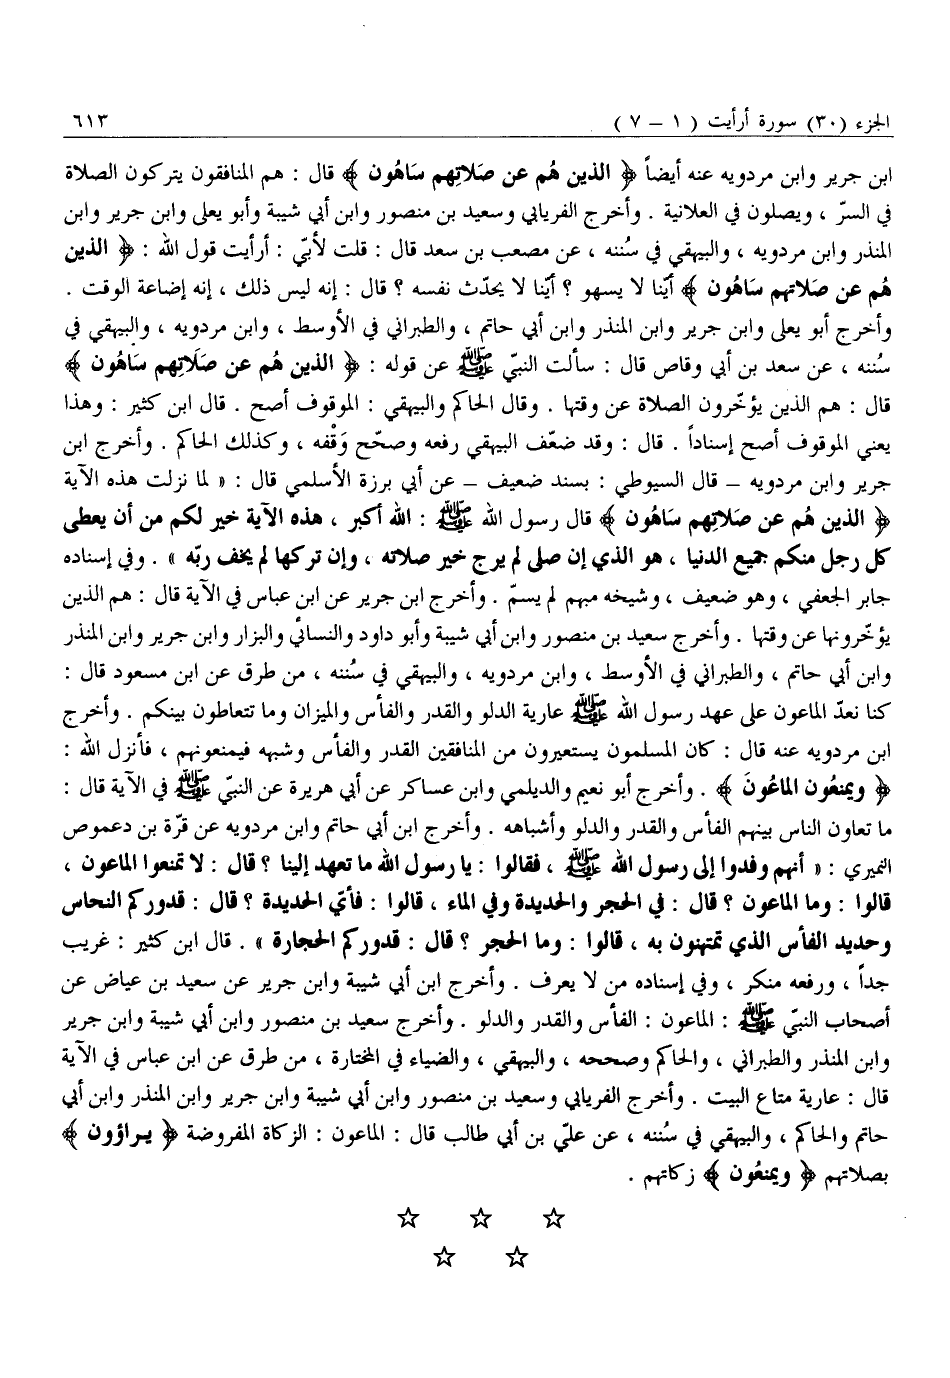 الجزء (٣٠) سورة أرأيت ( ١ – ٧ ) ٦١٣
ابن جرير وابن مردويه عنه أيضاً ﴿ الذين هم عن صَلاتِهم سَاهُون ﴾ قال : هم المنافقون يتركون الصلاة
في السرّ ، ويصلون في العلانية . وأخرج الفريابي وسعيد بن منصور وابن أبي شيبة وأبو يعلى وابن جرير وابن
المنذر وابن مردويه ، والبيهقي في سُننه ، عن مصعب بن سعد قال : قلت لأبّي : أرأيت قول الله : ﴿ الذين
هُم عن صَلاتهم سَاهُون ﴾ أيّنا لا يسهو ؟ أيّنا لا يحدّث نفسه ؟ قال : إنه ليس ذلك ، إنه إضاعة الوقت .
وأخرج أبو يعلى وابن جرير وابن المنذر وابن أبي حاتم ، والطبراني في الأوسط ، وابن مردويه ، والبيهقي في
سُننه ، عن سعد بن أبي وقاص قال : سألت النبّي ﷺ عن قوله : ﴿ الذين هُم عن صَلَاتِهم سَاهُون ﴾
قال : هم الذين يؤخّرون الصلاة عن وقتها . وقال الحاكم والبيهقي : الموقوف أصح . قال ابن كثير : وهذا
يعني الموقوف أصح إسناداً . قال : وقد ضعّف البيهقي رفعه وصحّح وَقْفه ، وكذلك الحاكم . وأخرج ابن
جرير وابن مردويه – قال السيوطي : بسند ضعيف – عن أبي برزة الأسلمي قال : « لما نزلت هذه الآية
﴿ الذين هُم عن صَلاتِهم سَاهُون ﴾ قال رسول الله ﷺ : الله أكبر ، هذه الآية خير لكم من أن يعطى
كل رجل منكم جميع الدنيا ، هو الذي إن صلى لم يرج خير صلاته ، وإن تركها لم يخف ربّه » . وفي إسناده
جابر الجعفي ، وهو ضعيف ، وشيخه مبهم لم يسمّ . وأخرج ابن جرير عن ابن عباس في الآية قال : هم الذين
يؤخّرونها عن وقتها . وأخرج سعيد بن منصور وابن أبي شيبة وأبو داود والنسائي والبزار وابن جرير وابن المنذر
وابن أبي حاتم ، والطبراني في الأوسط ، وابن مردويه ، والبيهقي في سُننه ، من طرق عن ابن مسعود قال :
كنا نعدّ الماعون على عهد رسول الله ﷺ عارية الدلو والقدر والفأس والميزان وما تتعاطون بينكم . وأخرج
ابن مردويه عنه قال : كان المسلمون يستعيرون من المنافقين القدر والفأس وشبهه فيمنعونهم ، فأنزل الله :
﴿ ويمنعُون الماعُونَ ﴾ . وأخرج أبو نعيم والديلمي وابن عساكر عن أبي هريرة عن النبّي ﷺ في الآية قال :
ما تعاون الناس بينهم الفأس والقدر والدلو وأشباهه . وأخرج ابن أبي حاتم وابن مردويه عن قرّة بن دعموص
النميري : « أنهم وفدوا إلى رسول الله ﷺ ، فقالوا : يا رسول الله ما تعهد إلينا ؟ قال : لا تمنعوا الماعون ،
قالوا : وما الماعون ؟ قال : في الحجر والحديدة وفي الماء ، قالوا : فأي الحديدة ؟ قال : قدوركم النحاس
وحديد الفأس الذي تمتهنون به ، قالوا : وما الحجر ؟ قال : قدوركم الحجارة » . قال ابن كثير : غريب
جداً ، ورفعه منكر ، وفي إسناده من لا يعرف . وأخرج ابن أبي شيبة وابن جرير عن سعيد بن عياض عن
أصحاب النبّي ﷺ : الماعون : الفأس والقدر والدلو . وأخرج سعيد بن منصور وابن أبي شيبة وابن جرير
وابن المنذر والطبراني ، والحاكم وصححه ، والبيهقي ، والضياء في المختارة ، من طرق عن ابن عباس في الآية
قال : عارية متاع البيت . وأخرج الفريابي وسعيد بن منصور وابن أبي شيبة وابن جرير وابن المنذر وابن أبي
حاتم والحاكم ، والبيهقي في سُننه ، عن عليّ بن أبي طالب قال : الماعون : الزكاة المفروضة ﴿ يـراؤون ﴾
بصلاتهم ﴿ ويمنعُون ﴾ زكاتهم .
☆ ☆ ☆
☆ ☆